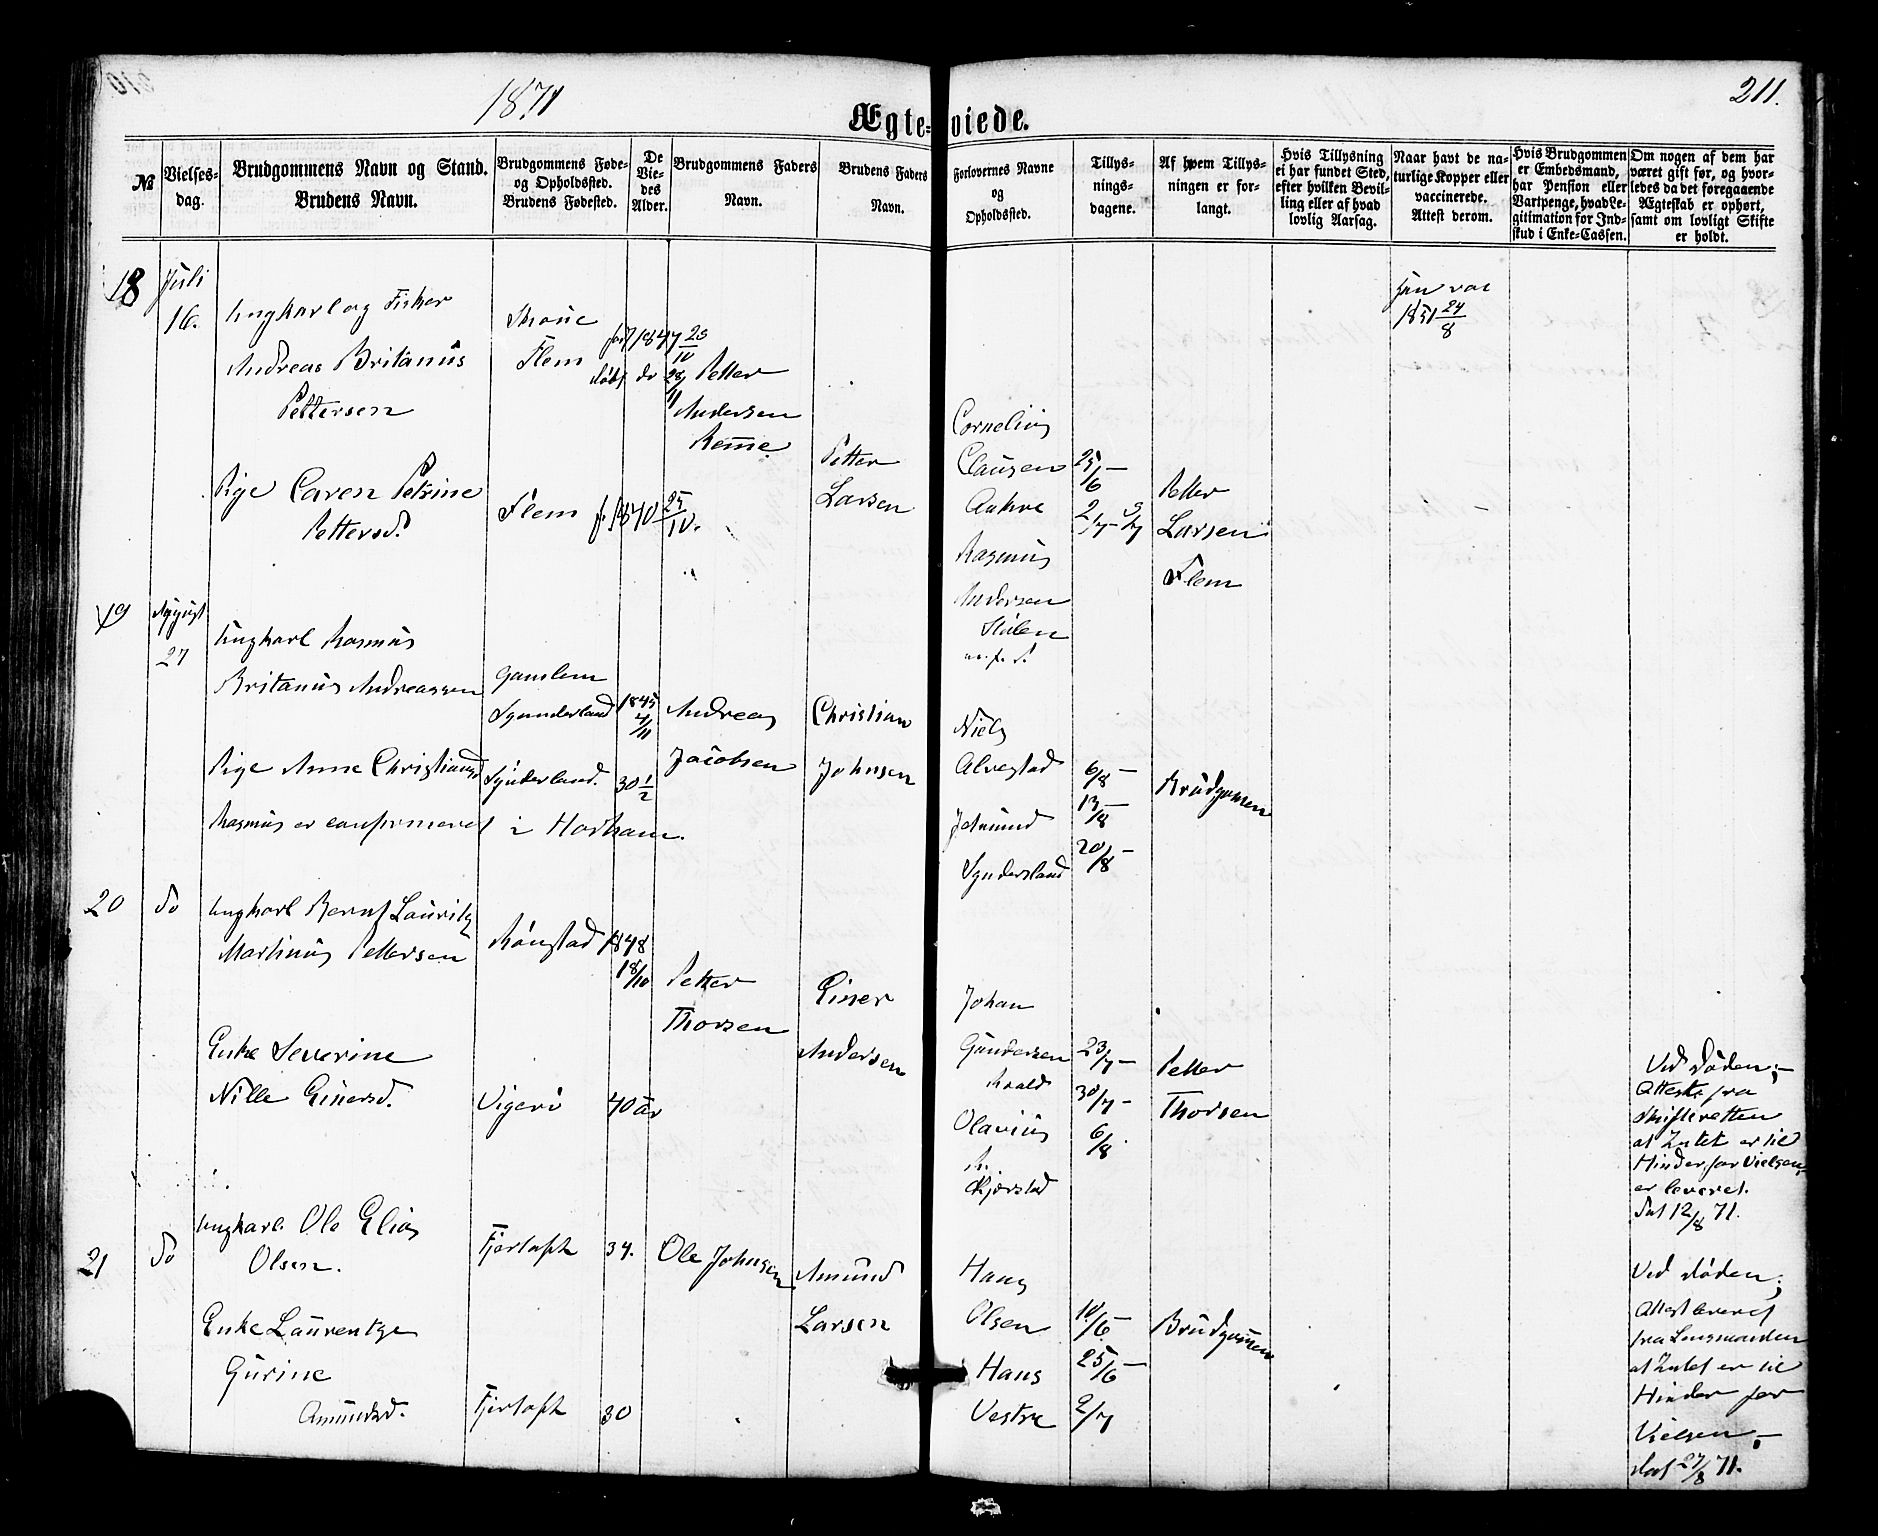 1871
211.
Ægte-viede.
№
Vielses-
dag.
Brudgommens Navn og Stand.
Brudens Navn.
Brudgommens Føde-
og Opholdssted.
Brudens Fødested.
De
Vie-
des
Alder.
Brudgommens Faders
Navn.
Brudens Faders
Navn.
Forlovernes Navne
og
Opholdssted.
Tillys-
nings-
dagene.
Af hvem Tillys-
ningen er for-
langt.
Hvis Tillysning
ei har fundet Sted,
efter hvilken Bevil-
ling eller af hvad
lovlig Aarsag.
Naar havt de na-
turlige Kopper eller
vaccinerede.
Attest derom.
Hvis Brudgommen
er Embedsmand,
har Pension eller
Vartpenge, hvad Le-
gitimation for Ind-
skud i Enke-Cassen.
Om nogen af dem har
været gift før, og hvor-
ledes da det foregaaende
Ægteskab er ophørt,
samt om lovligt Skifte
er holdt.
18
Juli
16.
Ungkarl og Fisker
Andreas Britanus
Pettersen
Flem
1847
Petter
Andersen
Pige Caren Petrine
Pettersd.
Flem
f. 1840 25/10.
Petter
Larsen
Cornelius
Clausen
Rasmus
Andersen
25/6 –
2/7 – 9/7
Petter
Larsen
Flem
1851 24/8
19
August
27
Ungkarl Rasmus
Britanus Andreassen
Gamlem
Synnderland
1845
4/11
Andreas
Jacobsen
Christian
Johnsen
Pige Anne Christiansd
Synderland.
30 1/2
Rasmus er confirmeret i Harham.
Niels
Alvestad
Synderland
6/8 –
13/8 –
20/8 –
Brudgomen
20
do
Ungkarl Bernt Lauritz
Martinus Pettersen
Rønstad
1848
18/10
Petter
Thorsen
Einer
Andersen
Enke Severine
Nille Einersd.
Vigerö
40 år
Johan
Gundersen
Roald
Olavius
Kjerstad
23/7 –
30/7 –
6/8
Petter
Thorsen
Ved Døden; –
Attest fra
Skifteretten
at Intet er til
Hinder for Vielsen,
er leveret.
dat 12/8 71.
21
do
Ungkarl Ole Elias
Olsen.
Fjertoft
34.
Ole Johnsen
Amund
Larsen
Enke Laurentze
Gurine
Amundsd.
Fjertoft
30
Hans
Olsen
Hans
Vestre
18/6 –
25/6 –
2/7
Brudgomen
Ved Døden;
Attest leveret
fra Lensmanden
at Intet er til
Hinder for
Vielsen, –
dat 27/8 71.